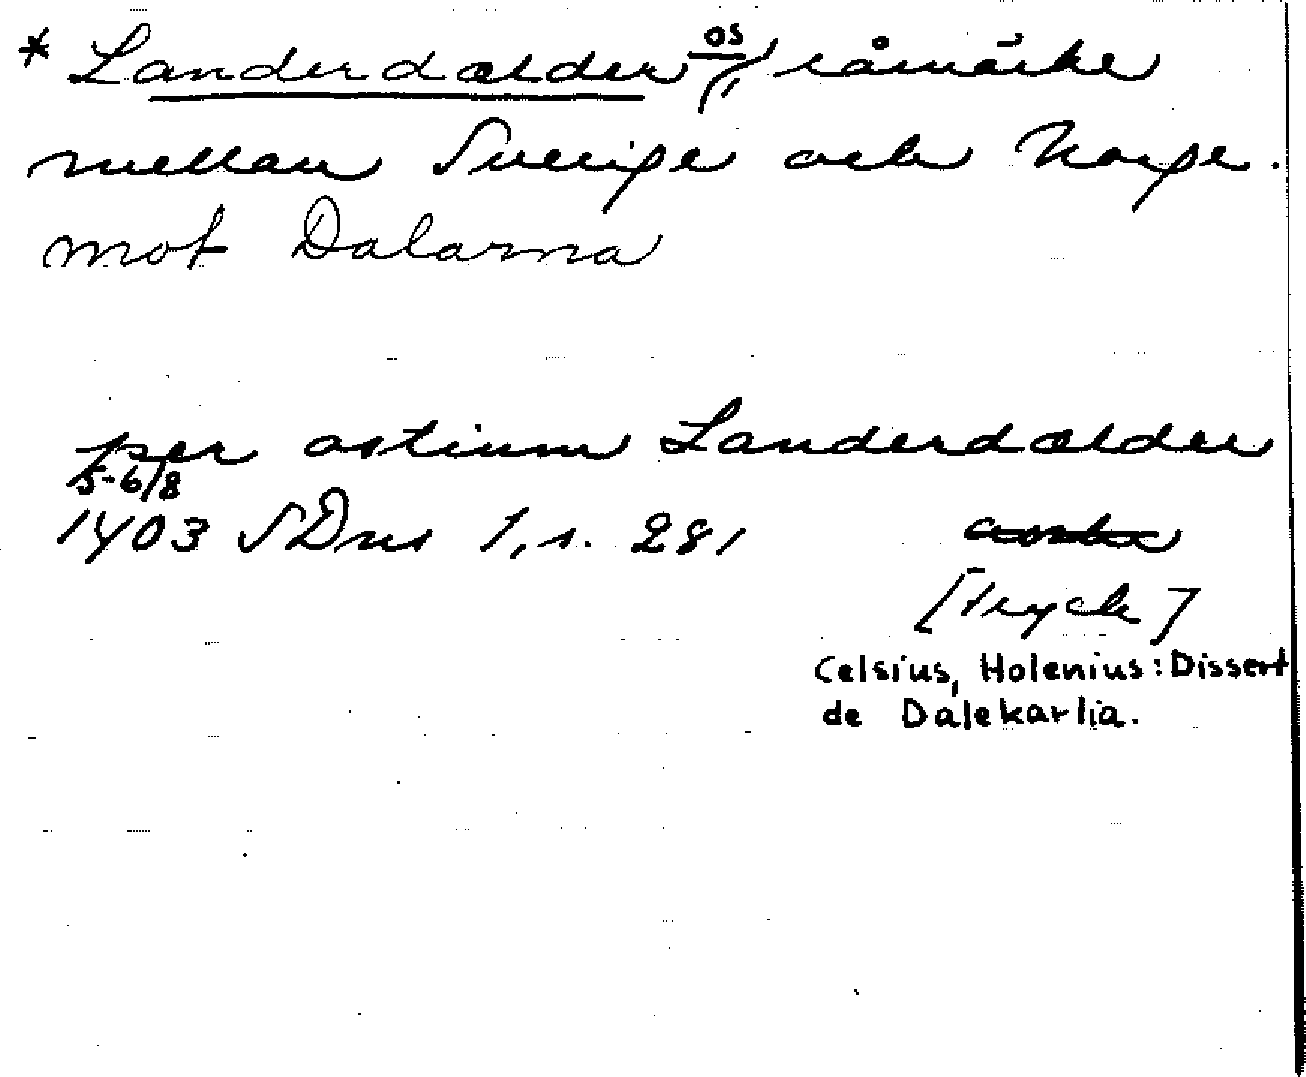 * Landerdælder os råmärke
mellan Sverige och Norge.
mot Dalarna
per ostium Landerdælder
5-6/8
1403 SDns 1, s. 281
[tryck]
Celsius, Holenius: Dissert
de Dalekarlia.